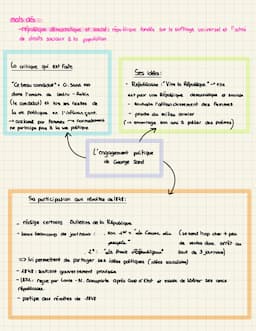 mots clés :
- république démocratique et sociale : république fondée sur le suffrage universel et l'octroi
de droits sociaux à la population
La critique qui est faite
"Ce beau conducteur" → G. Sand est
dans l'ombre de Ledru - Rollin
(le conducteur) et tire les ficelles de
la vie politique en l'influençant.
→ critiqué par femmes → normalement
ne participe pas à la vie politique
Ses idées :
- Républicaine : "Vive la République" → elle
est pour une République démocratique et sociale
- souhaite l'affranchissement des femmes
- proche du milieu ouvrier
(→ encourage son ami à publier des poèmes)
L'engagement politique
de George Sand
Sa participation aux révoltes de 1848 :
- rédige certains Bulletins de la République
- lance beaucoup de journaux :
"la Cause du
peuple"
"la Vraie République"
(se vend trop cher + peu
de ventes donc arrêt au
bout de 3 journaux)
=> lui permettent de partager ses idées politiques (idées socialistes)
- 1848 : soutient gouvernement provisoire
- reçue par Louis - N. Bonaparte après Coup d'Etat et essaie de libérer ses amis
républicains.
- partage des révoltes de 1848